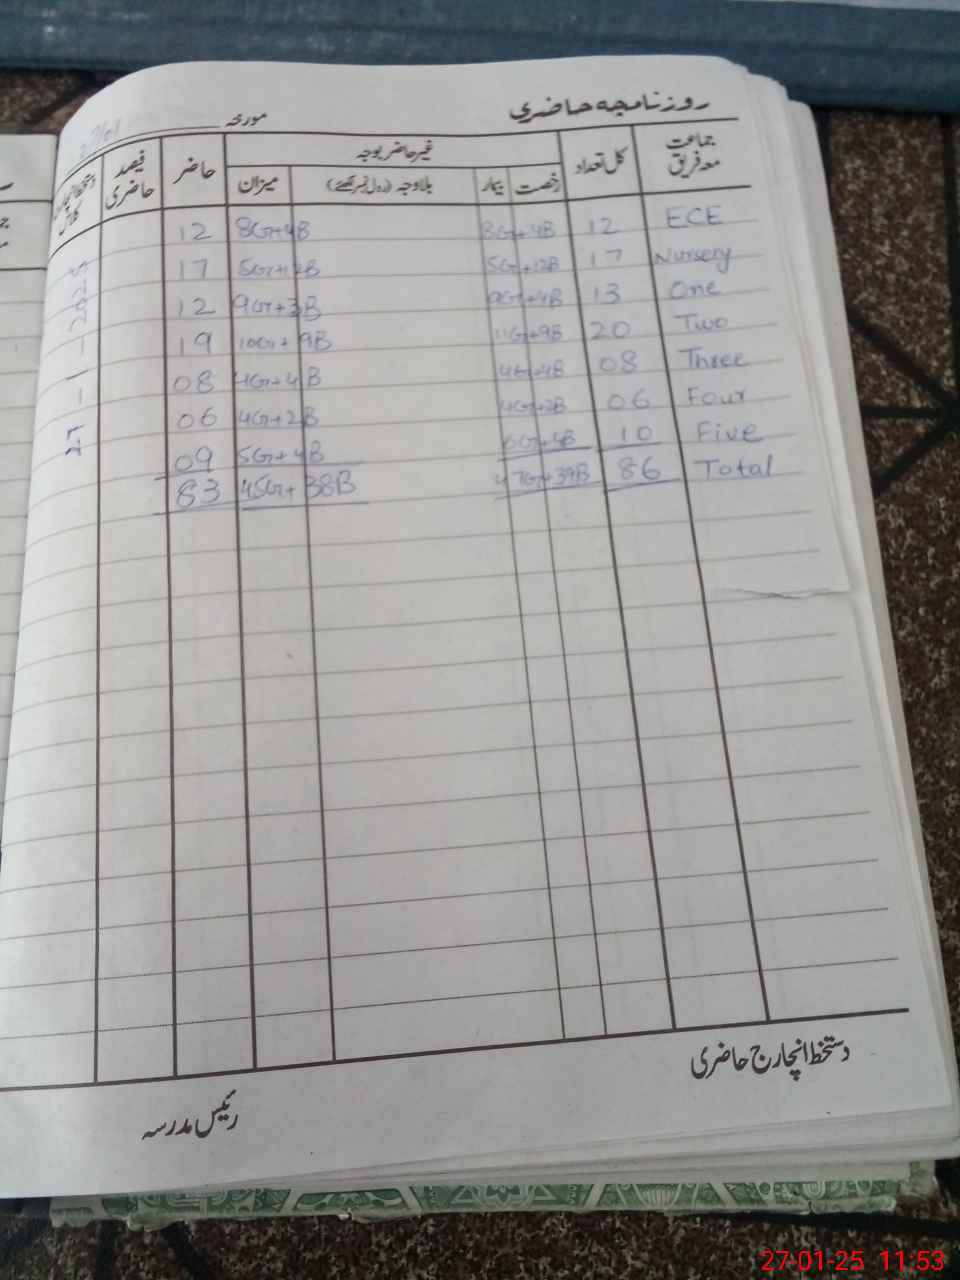 روزنامچہ حاضری
مورخہ
جماعت معہ فریق کل تعداد غیر حاضر بوجہ حاضر فیصد حاضری
رخصت بیمار بلاوجہ (رول نمبر لکھئے) میزان
ECE 12 8G+4B 8G+4B 12
Nursery 17 5G+12B 5G+12B 17
One 13 9G+4B 9G+3B 12
Two 20 11G+9B 10G+9B 19
Three 08 4G+4B 4G+4B 08
Four 06 4G+2B 4G+2B 06
Five 10 6G+4B 5G+4B 09
Total 86 47G+39B 45G+38B 83
27-1-2025
دستخط انچارج حاضری
رئیس مدرسہ
27-01-25 11:53